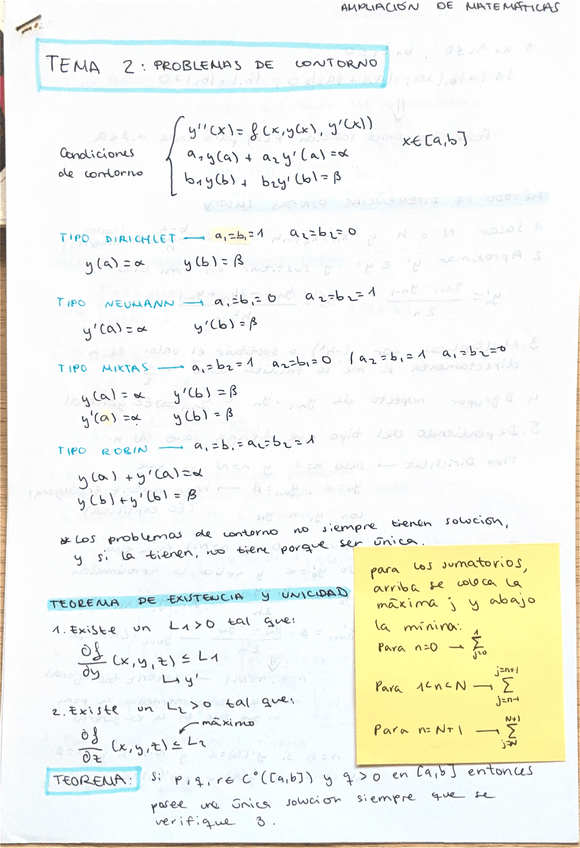 AMPLIACIÓN DE MATEMÁTICAS
TEMA 2: PROBLEMAS DE CONTORNO
Condiciones de contorno
y''(x) = f(x, y(x), y'(x))
a₁y(a) + a₂y'(a) = α
b₁y(b) + b₂y'(b) = β
x∈[a,b]
TIPO DIRICHLET → a₁=b₁=1 a₂=b₂=0
y(a)=α y(b)=β
TIPO NEUMANN → a₁=b₁=0 a₂=b₂=1
y'(a)=α y'(b)=β
TIPO MIXTAS → a₁=b₂=1 a₂=b₁=0 / a₂=b₁=1 a₁=b₂=0
y(a)=α y'(b)=β
y'(a)=α y(b)=β
TIPO ROBIN → a₁=b₁=a₂=b₂=1
y(a)+y'(a)=α
y(b)+y'(b)=β
* Los problemas de contorno no siempre tienen solución,
y si la tienen, no tiene porque ser única.
TEOREMA DE EXISTENCIA Y UNICIDAD
1. Existe un L1>0 tal que:
∂f/∂y (x,y,z) ≤ L1
↳ y'
2. Existe un L2>0 tal que:
máximo
∂f/∂z (x,y,z) ≤ L2
TEOREMA: Si p,q,r∈C°([a,b]) y q>0 en [a,b] entonces
posee una única solución siempre que se
verifique 3.
para los sumatorios,
arriba se coloca la
máxima j y abajo
la mínima:
Para n=0 → ∑ 1 j=0
Para 1<n<N → ∑ j=n+1 j=n-1
Para n=N+1 → ∑ N+1 j=N